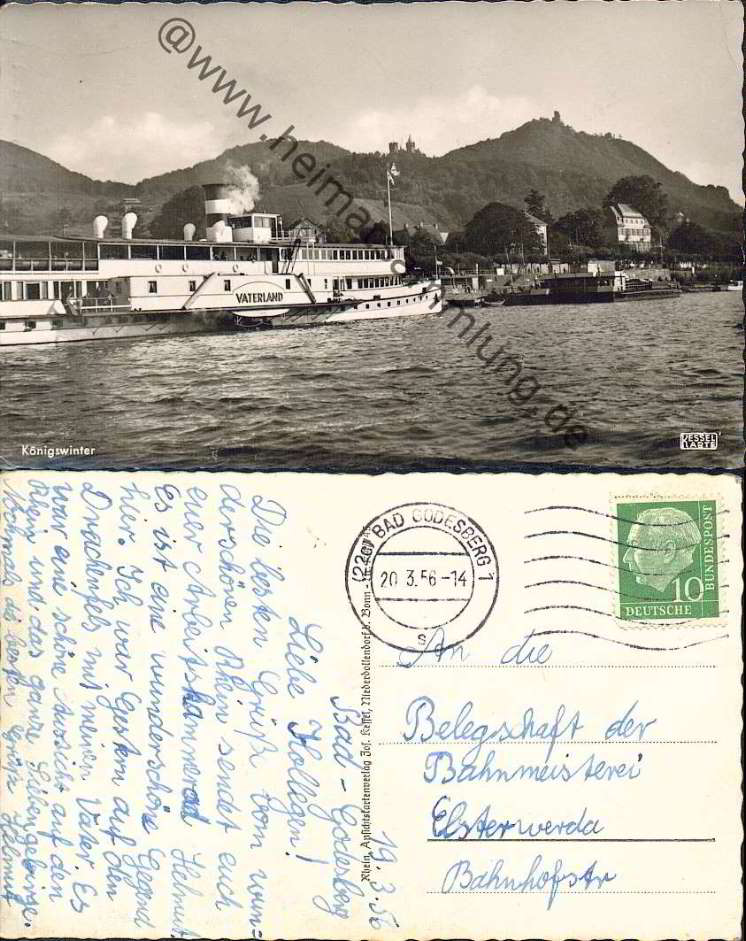 @www.heimatsammlung.de
VATERLAND
Königswinter
KESSEL
KARTE
(22c) BAD GODESBERG 1
20.3.56-14
s
DEUTSCHE
BUNDESPOST
10
An die
Belegschaft der
Bahnmeisterei
Elsterwerda
Bahnhofstr
Rhein. Ansichtskartenverlag Jos. Kessel, Niederdollendorf b. Bonn
Bad-Godesberg 19.3.56
Liebe Kollegen!
Die besten Grüße vom wun=
derschönen Rhein sendet euch
euer Arbeitskammerad Helmut.
Es ist eine wunderschöne Gegend
hier. Ich war Gestern auf den
Drachenfels mit meinen Vater. Es
war eine schöne Aussicht auf den
Rhein und das ganze Siebengebirge.
Nochmals die besten Grüße Helmut